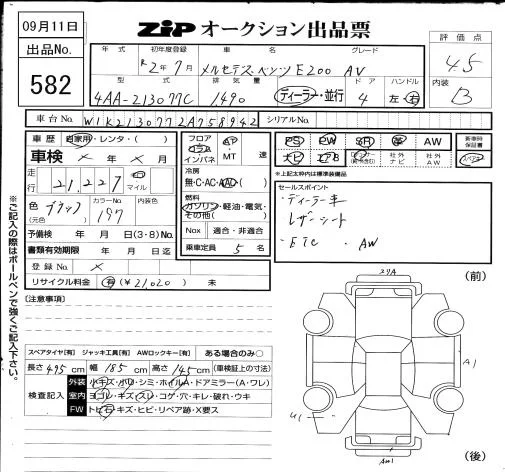 09月11日
ZiP オークション出品票
出品No.
582
評価点
4.5
内装
B
年式 初年度登録 車名 グレード
R2年7月 メルセデスベンツ E200 AV
型式 排気量 ドア ハンドル
4AA-213077C 1490 ディーラー・並行 4 左・右
車台No. W1K2130772A758942 シリアルNo.
車歴 自家用・レンタ・( )
車検 × 年 × 月
走行 21,227 キロ マイル
色 (元色) ブラック カラーNo. 197 内装色
予備検 年 月 日(3・8)No.
書類有効期限 年 月 日迄
登録No. ×
リサイクル料金 有 (¥21,020) 未
フロア コラム インパネ AT MT 速
冷房 無・C・AC・AAC・( )
燃料 ガソリン・軽油・電気・その他( )
Nox 適合・非適合
乗車定員 5 名
PS PW SR 革 AW
ナビ エアB 社外ナビ 社外AW
新車時保証書
※上記太枠内は標準装備品
セールスポイント
・ディーラー車
・レザーシート
・ETC ・AW
※ご記入の際はボールペンで強くご記入下さい。
[注意事項]
スペアタイヤ[有] ジャッキ工具[有] AWロックキー[有] ある場合のみ○
長さ 495cm 幅 185cm 高さ 145cm (車検証上の寸法)
検査記入
外装 小キズ・小凹・シミ・ホイルA・ドアミラー(A・ワレ)
室内 ヨゴレ・キズ・スレ・コゲ・穴・キレ・破れ・ウキ
FW トビ石・キズ・ヒビ・リペア跡・X要ス
スリA
(前)
A1
U1
AW1
(後)